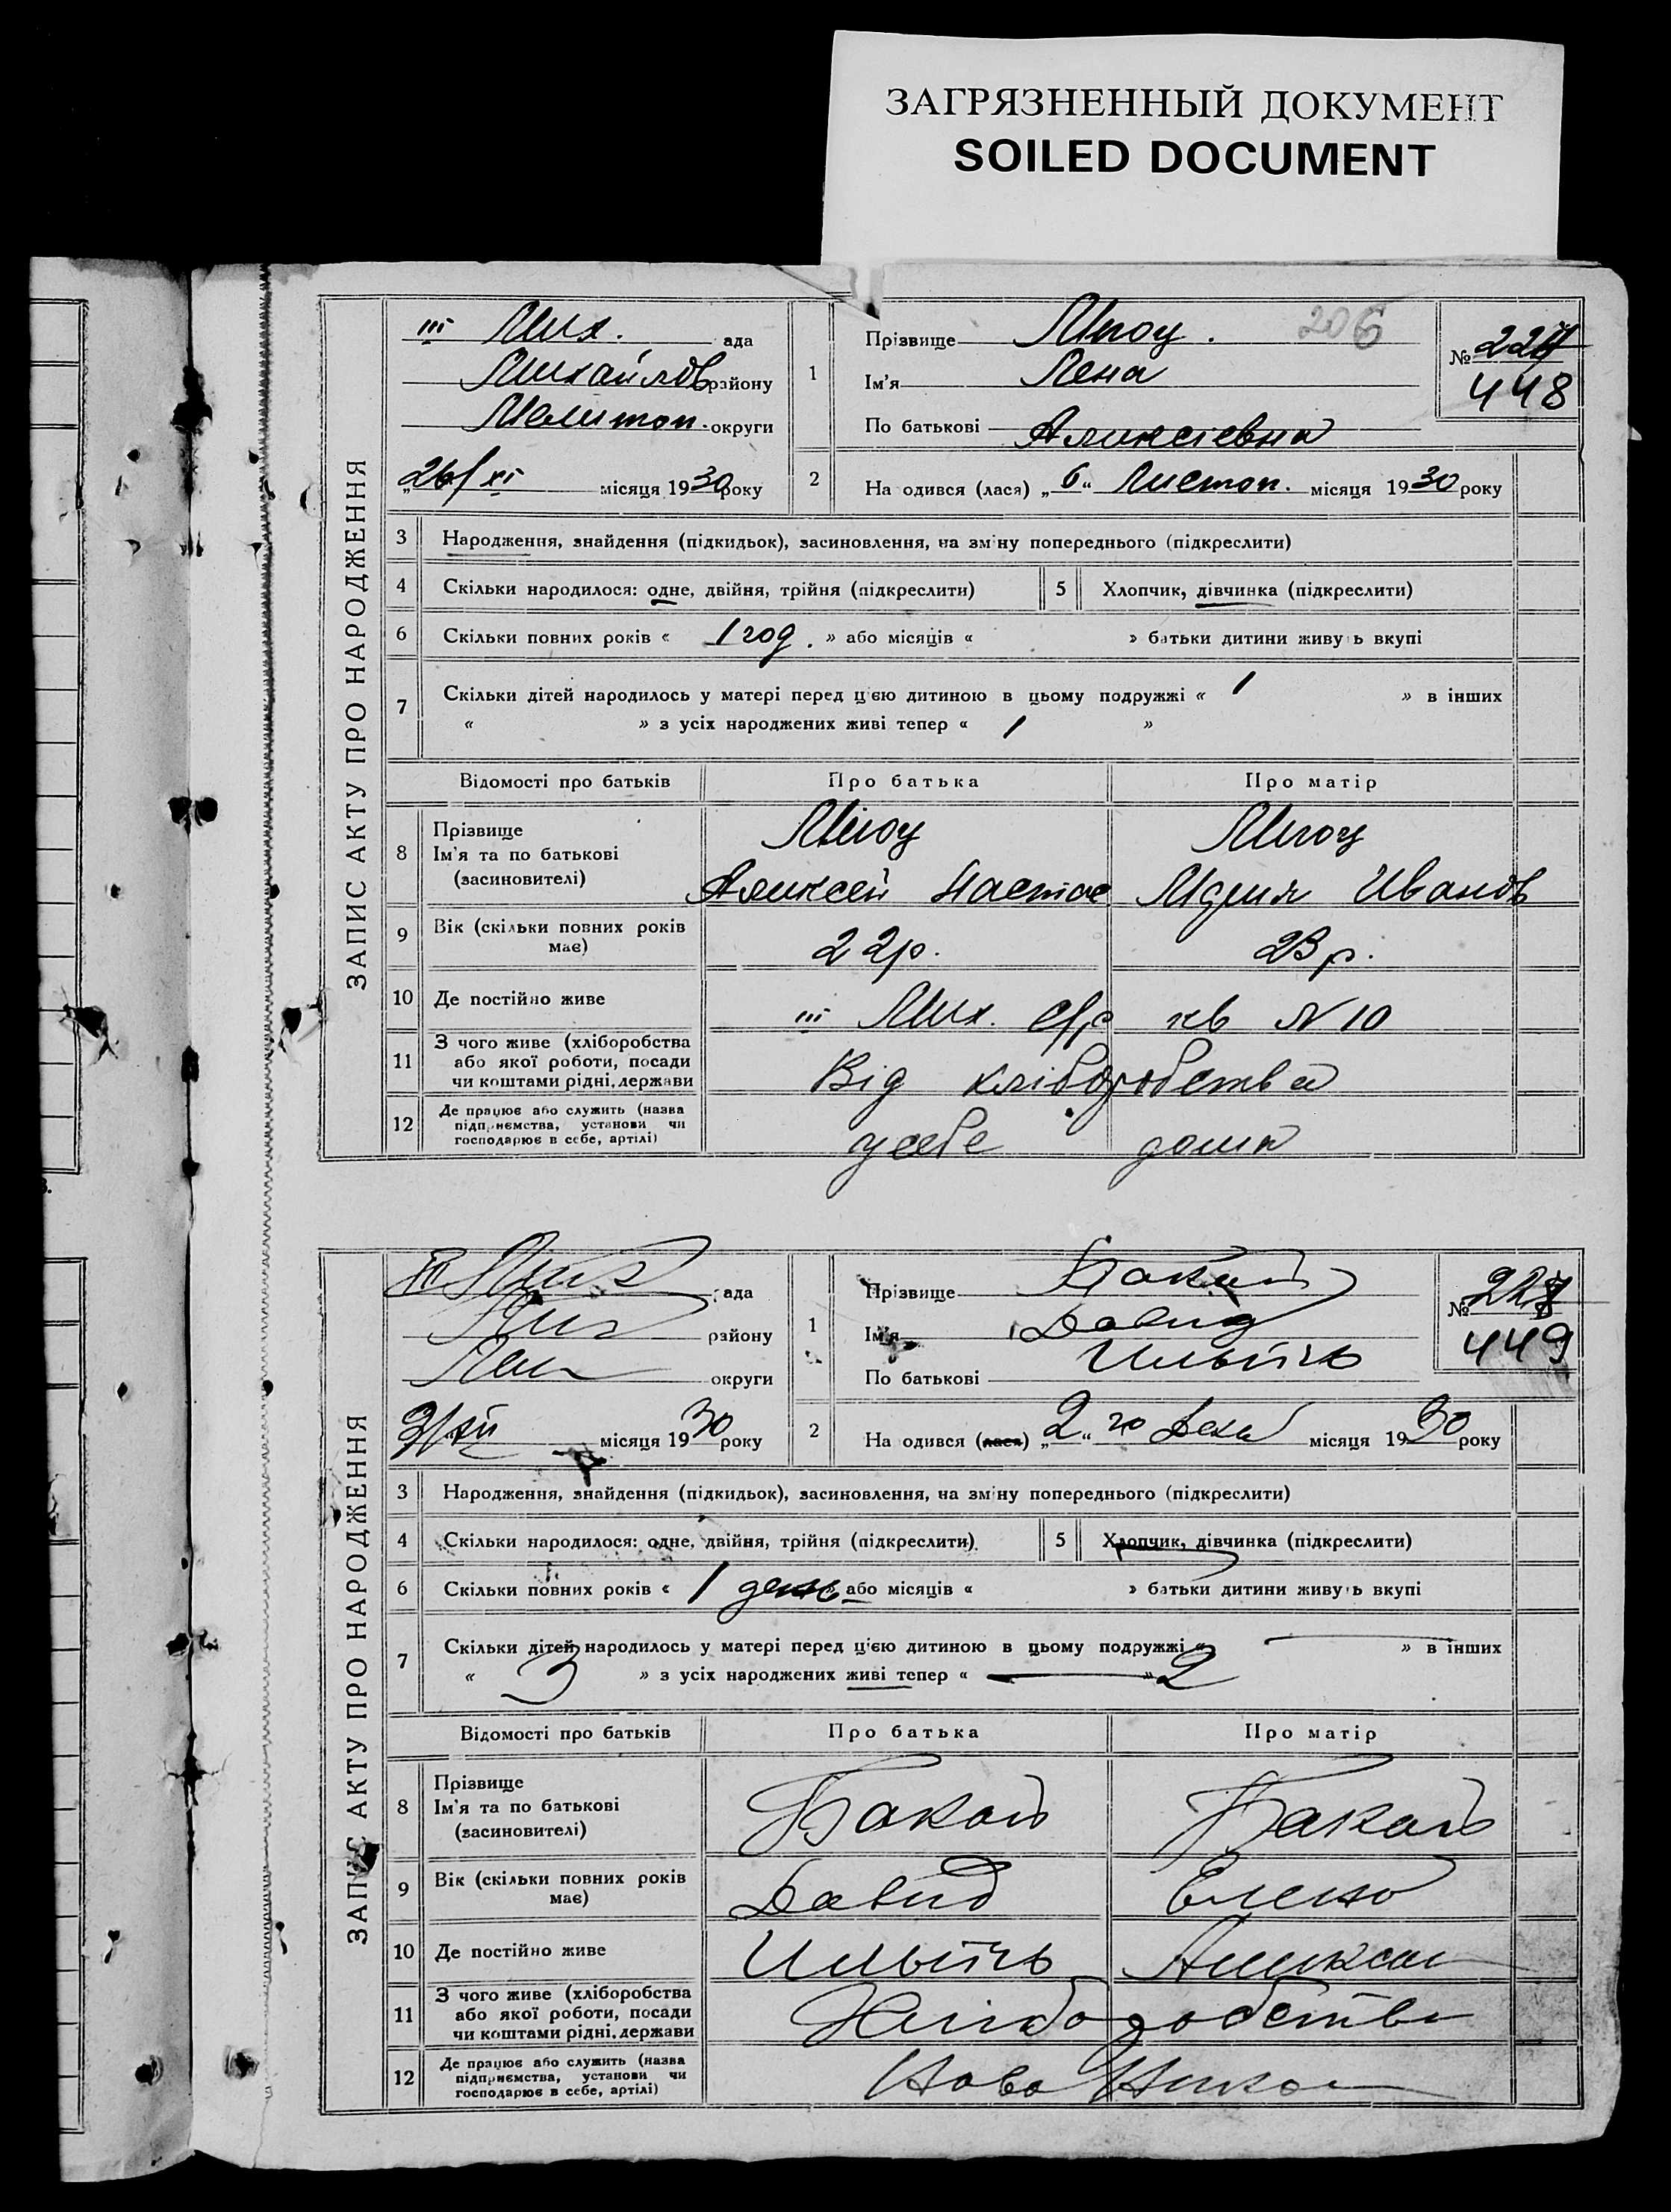 ЗАГРЯЗНЕННЫЙ ДОКУМЕНТ
SOILED DOCUMENT
206
ЗАПИС АКТУ ПРО НАРОДЖЕННЯ
III Мих. ада
Михайлов району
Мелитоп. округи
„26/XI місяця 1930 року
1 Прізвище
Ім'я Лена
По батькові Аликсієвна
№ 227
448
2 На одився (лася) „6“ Листоп. місяця 1930 року
3 Народження, знайдення (підкидьок), засиновлення, на зміну попереднього (підкреслити)
4 Скільки народилося: одне, двійня, трійня (підкреслити) 5 Хлопчик, дівчинка (підкреслити)
6 Скільки повних років « 1 год. » або місяців « » батьки дитини живуть вкупі
7 Скільки дітей народилось у матері перед цією дитиною в цьому подружжі « 1 » в інших
« » з усіх народжених живі тепер « 1 »
Відомості про батьків Про батька Про матір
8 Прізвище
Ім'я та по батькові
(засиновителі)
Аликсей Настас Мария Иванов
9 Вік (скільки повних років має) 22 р. 23 р.
10 Де постійно живе III Мих. с/р кв N 10
11 З чого живе (хліборобства
або якої роботи, посади
чи коштами рідні, держави
Від хліборобства
12 Де працює або служить (назва
підприємства, установи чи
господарює в себе, артілі)
усебе дома
ЗАПИС АКТУ ПРО НАРОДЖЕННЯ
III Мих ада
Мих району
Мел округи
3/XII місяця 1930 року
1 Прізвище
Ім'я Давид
По батькові Ильічь
№ 228
449
2 На одився (лася) „2“ го Дека місяця 1930 року
3 Народження, знайдення (підкидьок), засиновлення, на зміну попереднього (підкреслити)
4 Скільки народилося: одне, двійня, трійня (підкреслити) 5 Хлопчик, дівчинка (підкреслити)
6 Скільки повних років « 1 день » або місяців « » батьки дитини живуть вкупі
7 Скільки дітей народилось у матері перед цією дитиною в цьому подружжі « — » в інших
« 3 » з усіх народжених живі тепер « — » 2
Відомості про батьків Про батька Про матір
8 Прізвище
Ім'я та по батькові
(засиновителі)
Бакай Бакай
9 Вік (скільки повних років має) Давид Елена
10 Де постійно живе Ильічь Аликсан
11 З чого живе (хліборобства
або якої роботи, посади
чи коштами рідні, держави
Хлібородства
12 Де працює або служить (назва
підприємства, установи чи
господарює в себе, артілі)
Ново